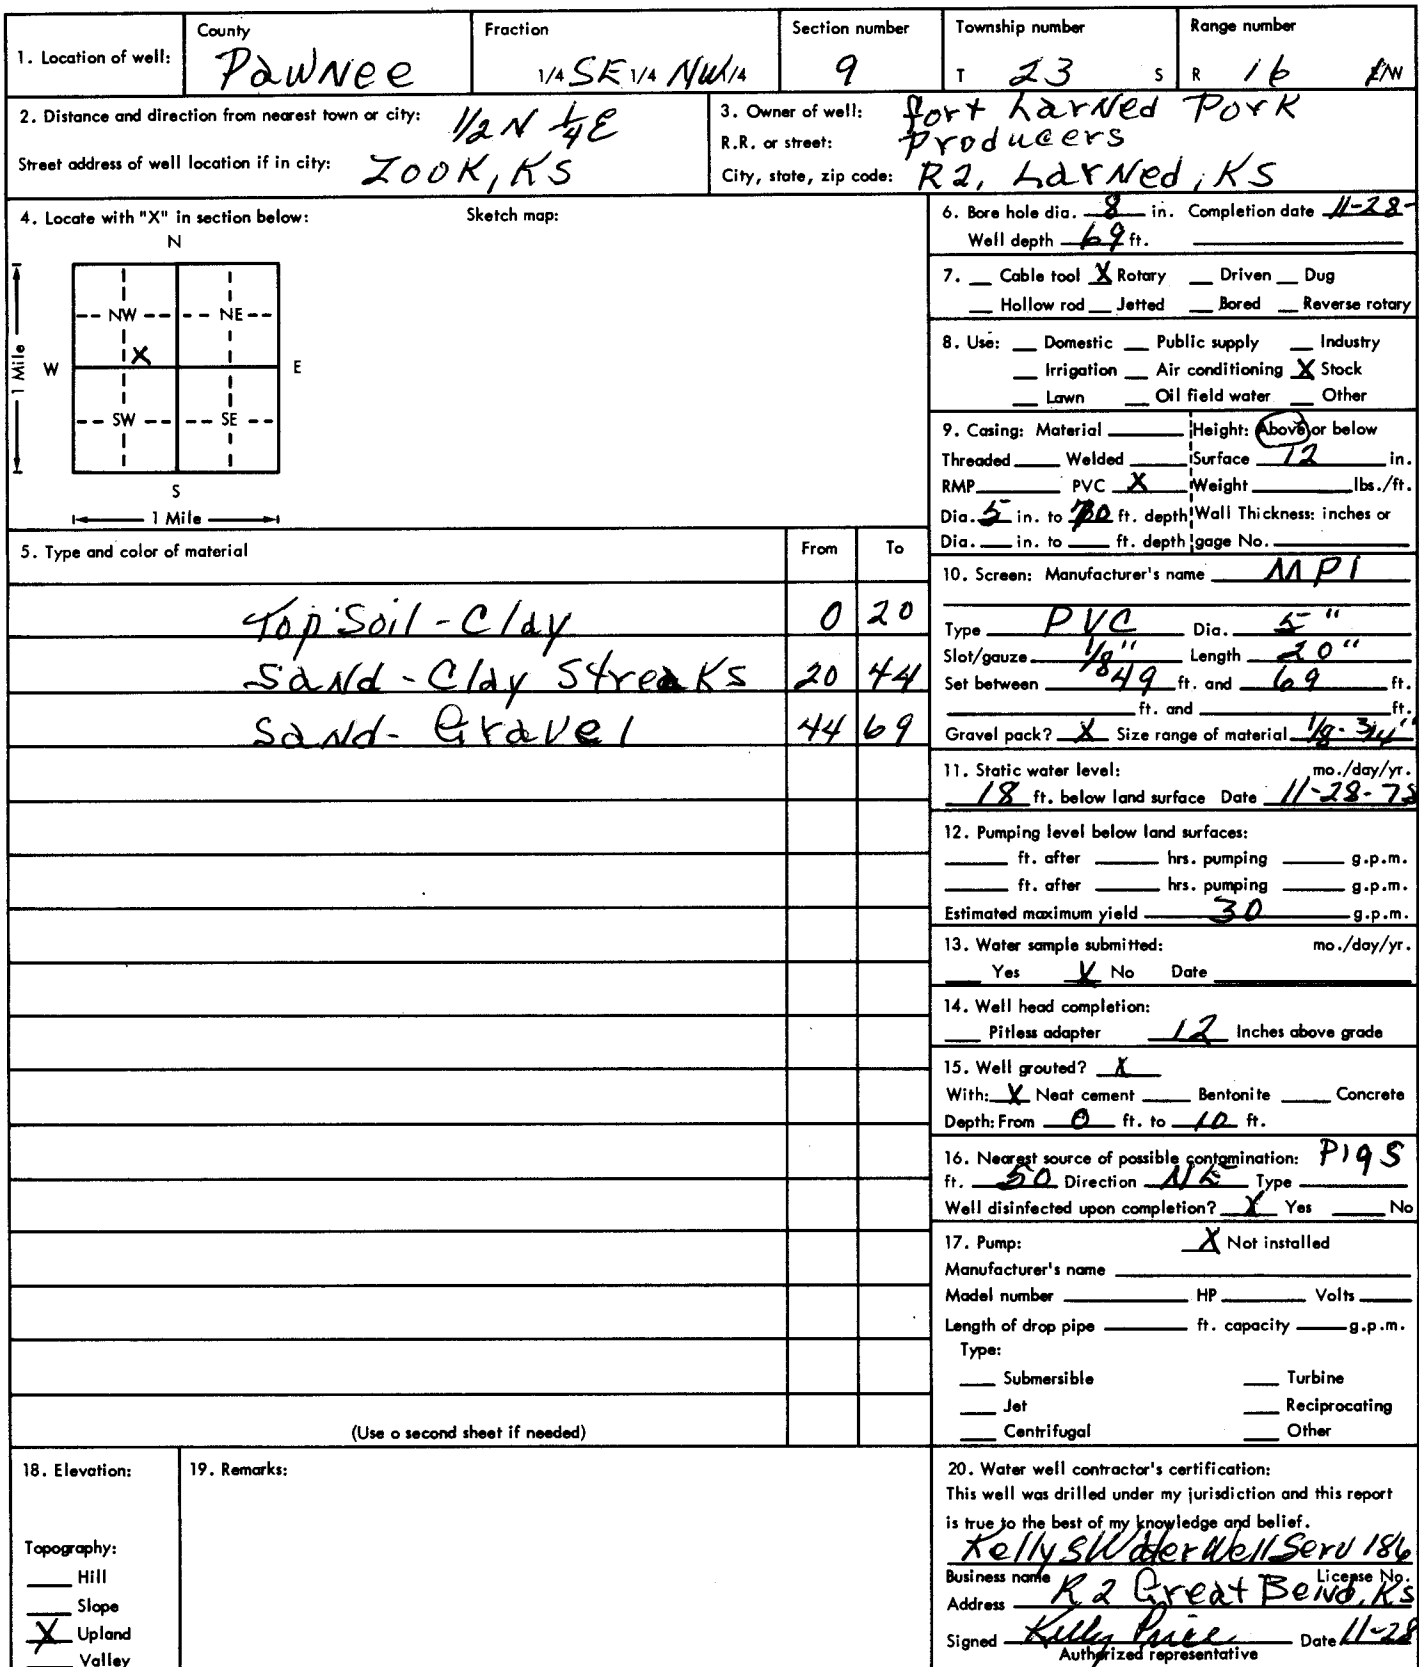 County Fraction Section number Township number Range number
1. Location of well: Pawnee 1/4 SE 1/4 NW 1/4 9 T 23 S R 16 E/W
2. Distance and direction from nearest town or city: 1/2 N 1/4 E
Street address of well location if in city: Zook, KS
3. Owner of well: Fort Larned Pork
R.R. or street: Producers
City, state, zip code: R2, Larned, KS
4. Locate with "X" in section below: Sketch map:
N
NW NE
X
W E
1 Mile
SW SE
S
1 Mile
5. Type and color of material From To
Top Soil - Clay 0 20
Sand - Clay Streaks 20 44
Sand - Gravel 44 69
(Use o second sheet if needed)
6. Bore hole dia. 8 in. Completion date 11-28-
Well depth 69 ft.
7. Cable tool X Rotary Driven Dug
Hollow rod Jetted Bored Reverse rotary
8. Use: Domestic Public supply Industry
Irrigation Air conditioning X Stock
Lawn Oil field water Other
9. Casing: Material Height: Above or below
Threaded Welded Surface 12 in.
RMP PVC X Weight lbs./ft.
Dia. 5 in. to 70 ft. depth Wall Thickness: inches or
Dia. in. to ft. depth gage No.
10. Screen: Manufacturer's name MPI
Type PVC Dia. 5"
Slot/gauze 1/8" Length 20"
Set between 49 ft. and 69 ft.
ft. and ft.
Gravel pack? X Size range of material 1/8-3/4"
11. Static water level: mo./day/yr.
18 ft. below land surface Date 11-28-78
12. Pumping level below land surfaces:
ft. after hrs. pumping g.p.m.
ft. after hrs. pumping g.p.m.
Estimated maximum yield 30 g.p.m.
13. Water sample submitted: mo./day/yr.
Yes X No Date
14. Well head completion:
Pitless adapter 12 Inches above grade
15. Well grouted? X
With: X Neat cement Bentonite Concrete
Depth: From 0 ft. to 10 ft.
16. Nearest source of possible contamination: Pigs
ft. 50 Direction NE Type
Well disinfected upon completion? X Yes No
17. Pump: X Not installed
Manufacturer's name
Model number HP Volts
Length of drop pipe ft. capacity g.p.m.
Type:
Submersible Turbine
Jet Reciprocating
Centrifugal Other
18. Elevation:
Topography:
Hill
Slope
X Upland
Valley
19. Remarks:
20. Water well contractor's certification:
This well was drilled under my jurisdiction and this report
is true to the best of my knowledge and belief.
Kellys Water Well Serv 186
Business name License No.
Address R2 Great Bend, Ks
Signed Kelly Price Date 11-28
Authorized representative